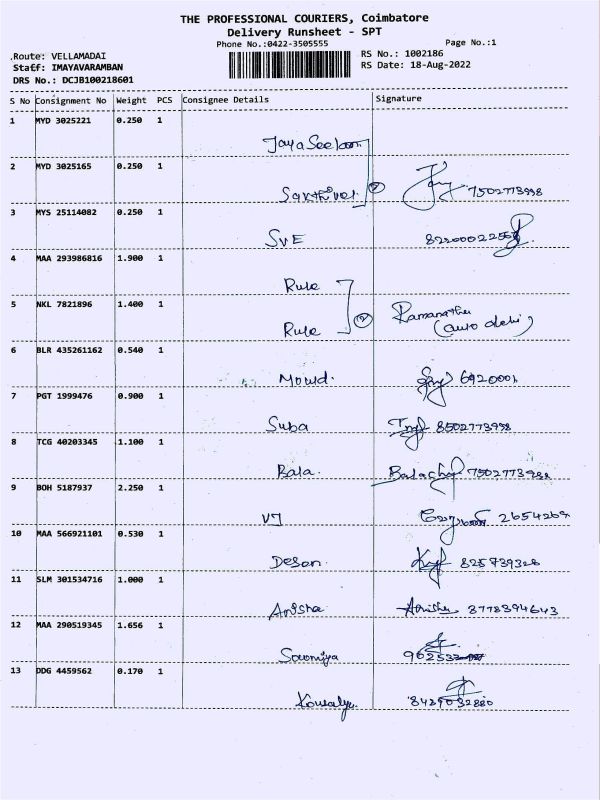 THE PROFESSIONAL COURIERS, Coimbatore
Delivery Runsheet - SPT
Phone No.:0422-3505555 Page No.:1
Route: VELLAMADAI RS No.: 1002186
Staff: IMAYAVARAMBAN RS Date: 18-Aug-2022
DRS No.: DCJB100218601
S No Consignment No Weight PCS Consignee Details Signature
1 MYD 3025221 0.250 1
Jaya Seelan
2 MYD 3025165 0.250 1
Sakthivel 2 7502773998
3 MYS 25114082 0.250 1
SVE
4 MAA 293986816 1.900 1
Rule
5 NKL 7821896 1.400 1
Rule 2 Ramanathan
6 BLR 435261162 0.540 1
Mould.
7 PGT 1999476 0.900 1
Suba 8502773998
8 TCG 40203345 1.100 1
Bala.
9 BOH 5187937 2.250 1
VJ
10 MAA 566921101 0.530 1
11 SLM 301534716 1.000 1
Anisha Anisha 8778394643
12 MAA 290519345 1.656 1
Sowmiya
13 DDG 4459562 0.170 1
Kowalya